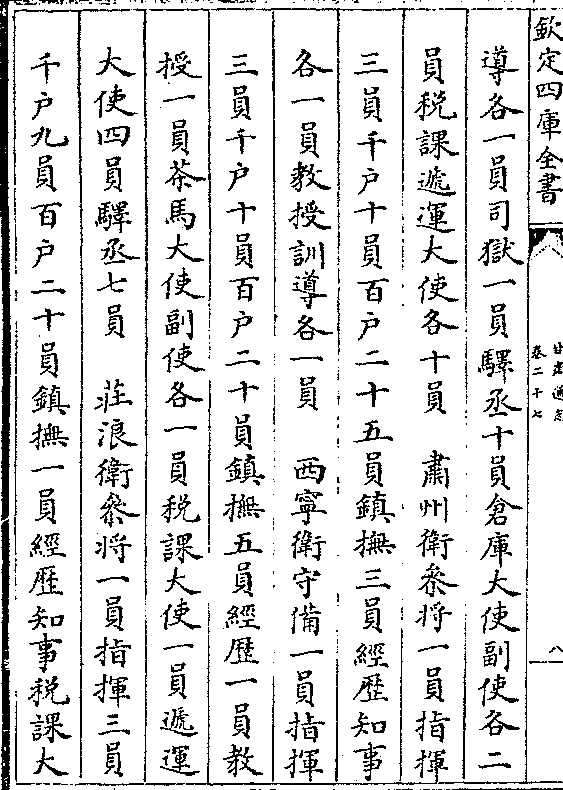 欽定四庫全書
甘肅通志
卷二十七
八
導各一員司獄一員驛丞十員倉庫大使副使各二
員税課遞運大使各十員　肅州衛叅将一員指揮
三員千户十員百户二十五員鎮撫三員經歴知事
各一員教授訓導各一員　西寧衛守備一員指揮
三員千户十員百户二十員鎮撫五員經歴一員教
授一員茶馬大使副使各一員税課大使一員遞運
大使四員驛丞七員　莊浪衛叅将一員指揮三員
千户九員百户二十員鎮撫一員經歴知事税課大